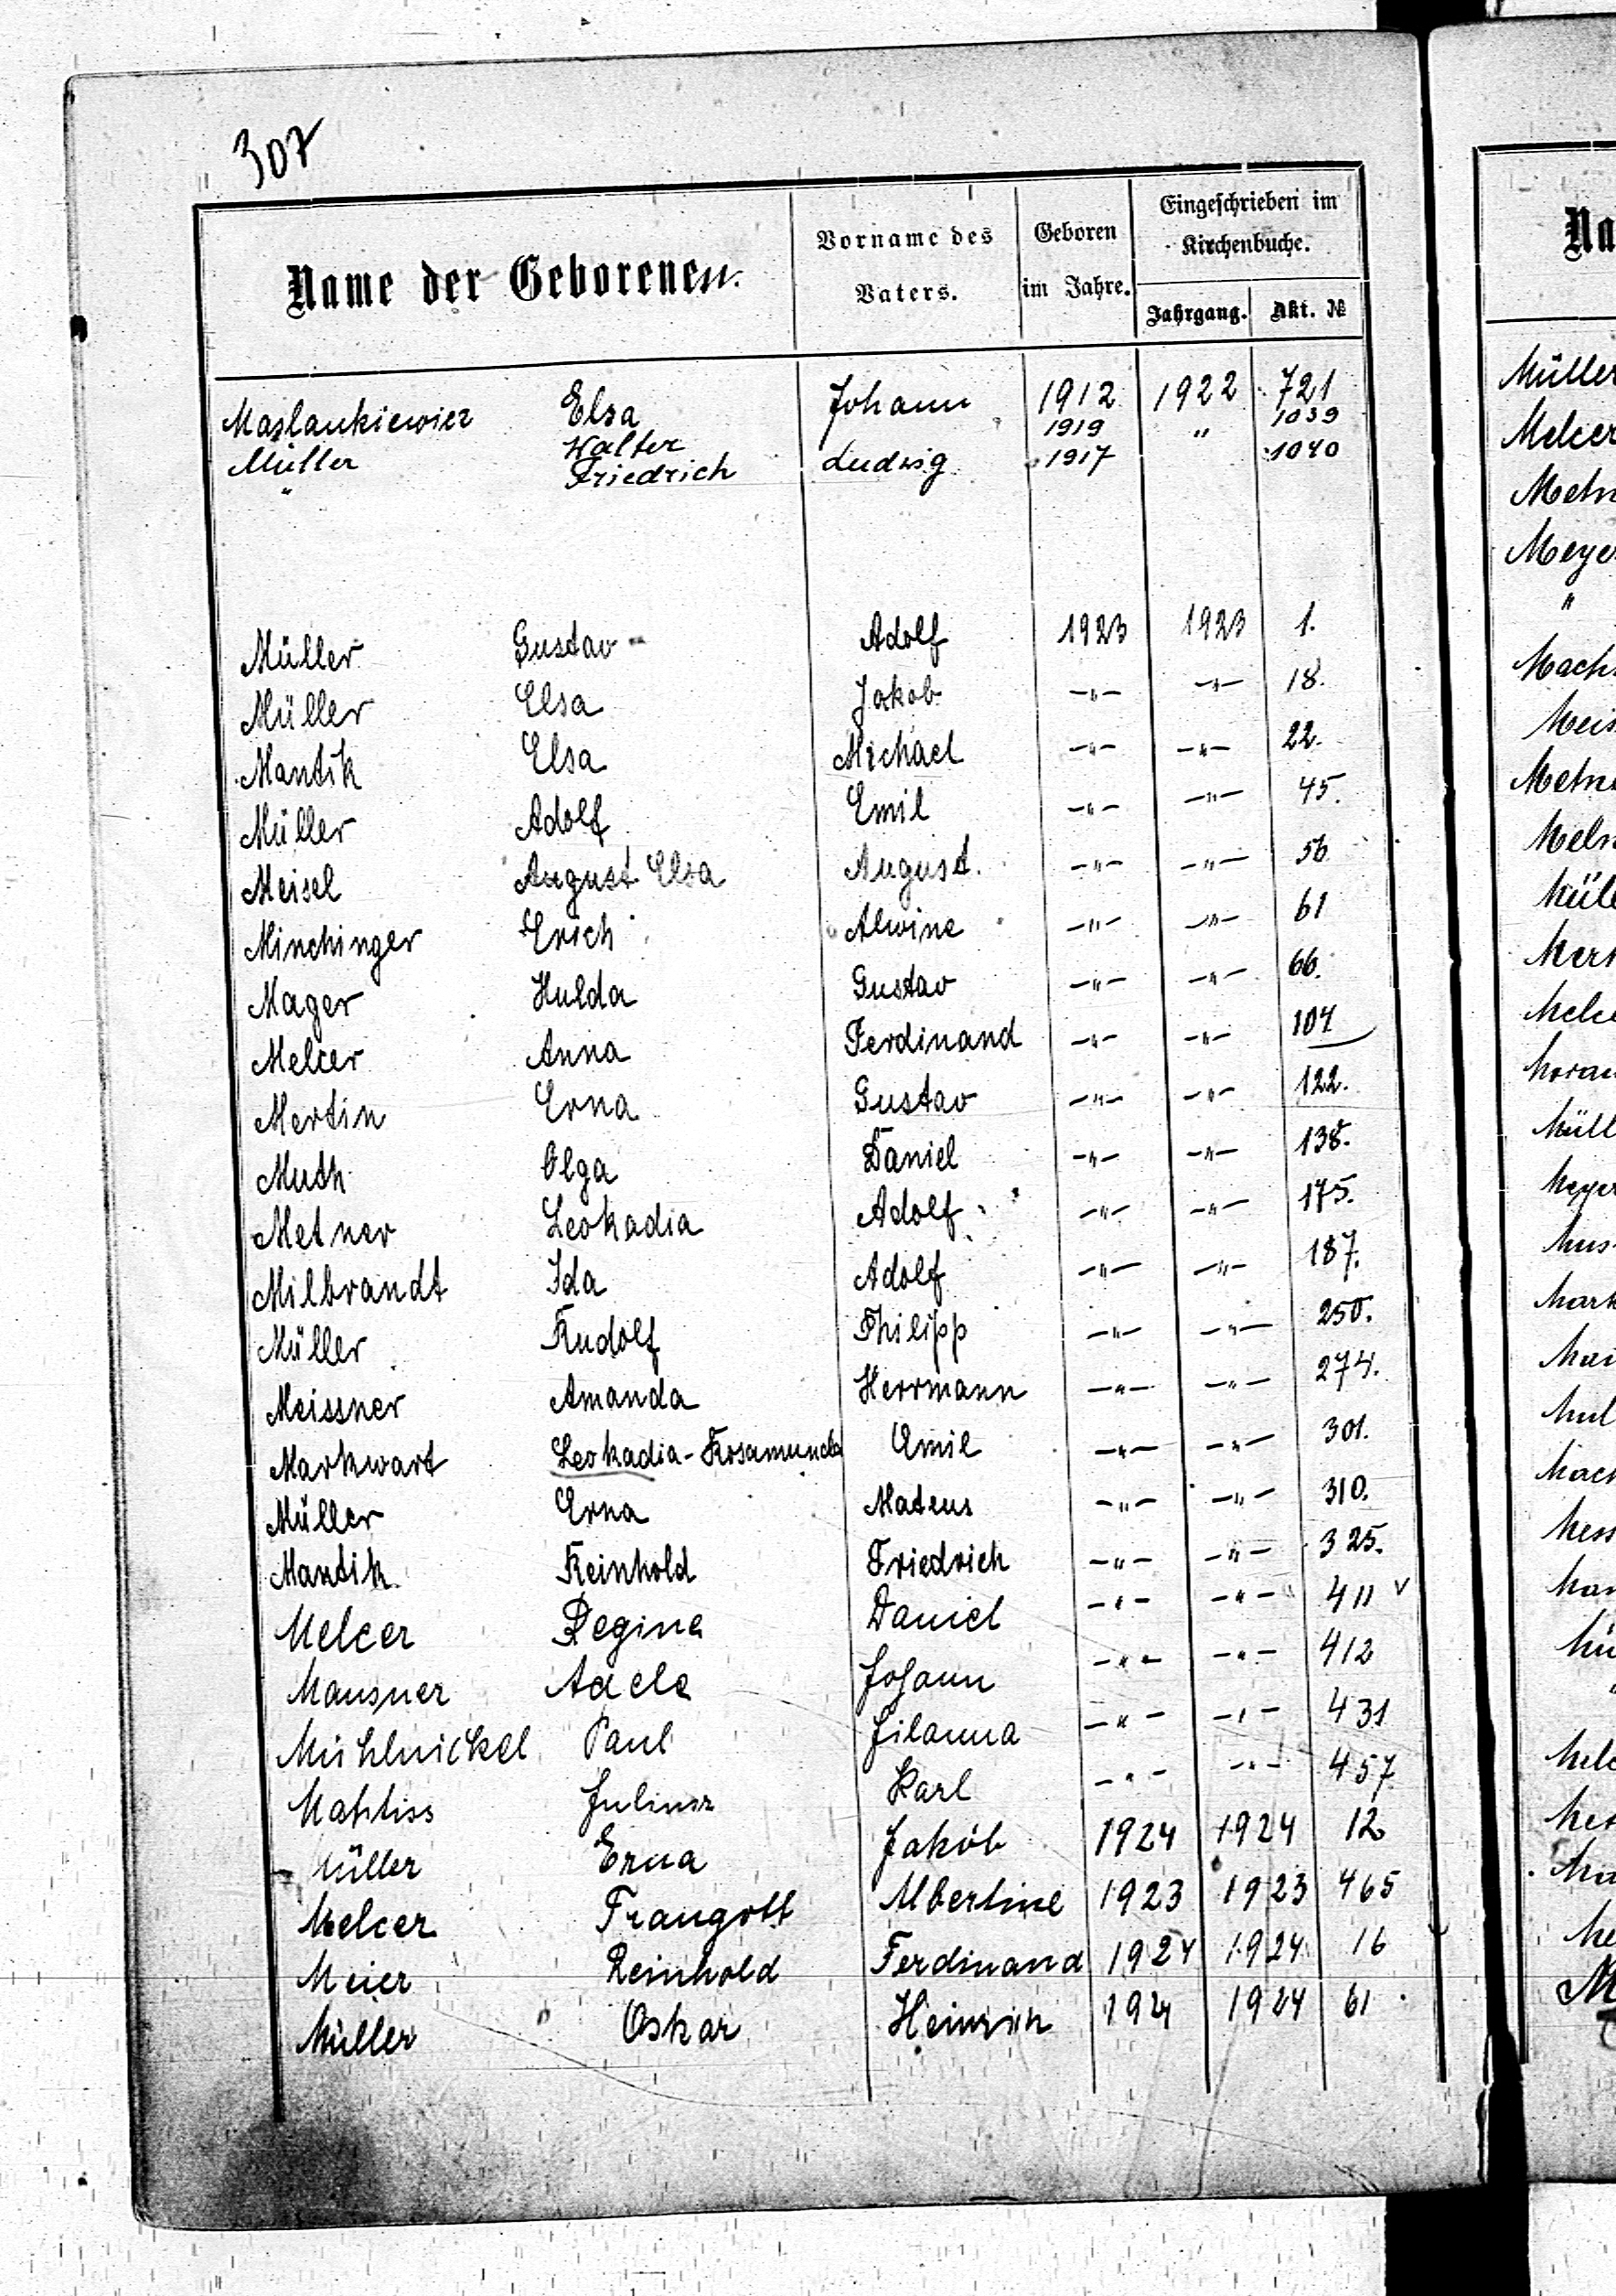 307
Name der Geborenen. Vorname des Vaters. Geboren im Jahre. Eingeschrieben im Kirchenbuche. Jahrgang. Akt. №
Maslankiewicz Elsa Johann 1912 1922 721
Müller Walter Ludwig 1919 " 1039
" Friedrich 1917 1040
Müller Gustav Adolf 1923 1923 1.
Müller Elsa Jakob -"- -"- 18.
Mantik Elsa Michael -"- -"- 22.
Müller Adolf Emil -"- -"- 45.
Meisel August Elsa August. -"- -"- 56
Minchinger Erich Alwine -"- -"- 61
Mager Hulda Gustav -"- -"- 66.
Melcer Anna Ferdinand -"- -"- 104
Mertin Erna Gustav -"- -"- 122.
Muth Olga Daniel -"- -"- 138.
Metner Leokadia Adolf -"- -"- 175.
Milbrandt Ida Adolf -"- -"- 187.
Müller Rudolf Philipp -"- -"- 250.
Meissner Amanda Herrmann -"- -"- 274.
Markwart Leokadia-Rosamunda Emil -"- -"- 301.
Müller Erna Mateus -"- -"- 310.
Mantik Reinhold Friedrich -"- -"- 325.
Melcer Regine Daniel -"- -"- 411 v
Mausner Adele Johann -"- -"- 412
Mühlnickel Paul -"- -"- 431
Mattiss Juliusz Karl -"- -"- 457
Müller Erna Jakób 1924 1924 12
Melcer Traugott Albertine 1923 1923 465
Meier Reinhold Ferdinand 1924 1924 16
Müller Oskar Heinrich 1924 1924 61
Na
Müller
Melcer
Metn
Meye
"
Mach
Meis
Metn